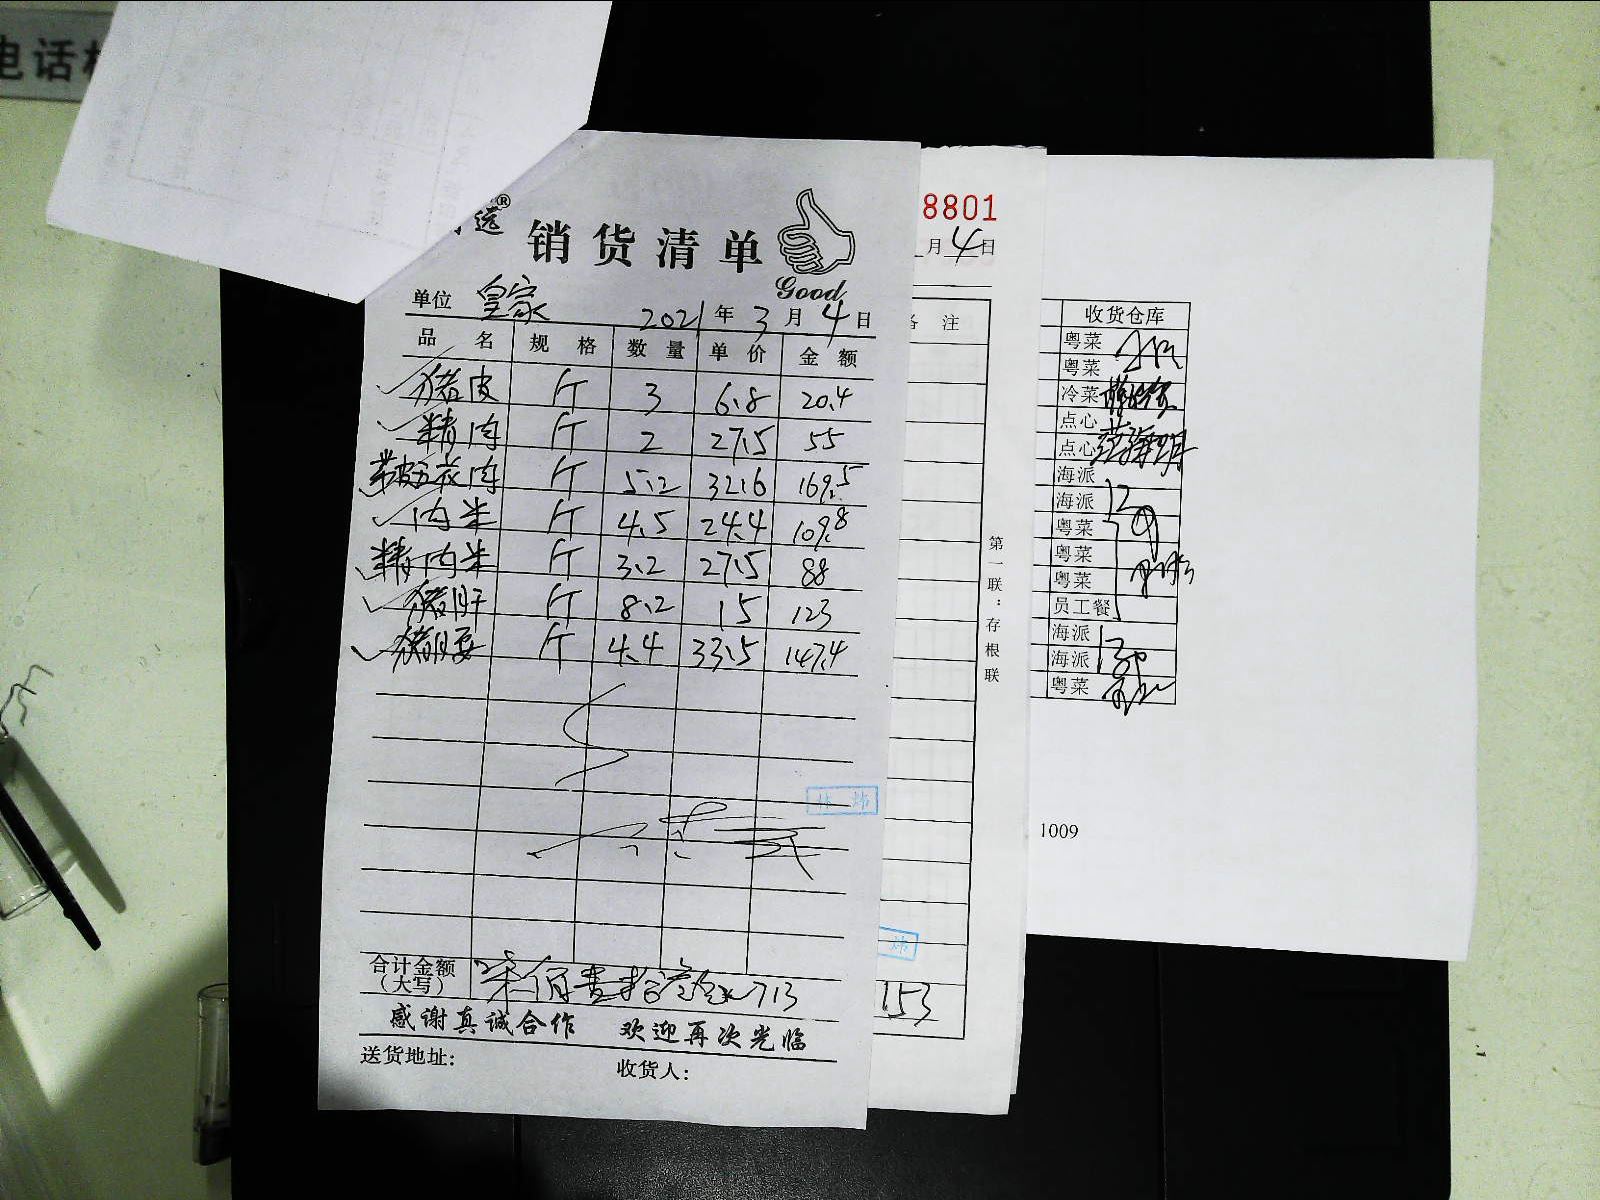 电话
远®
销货清单
Good
单位 皇家 2021年3月4日
品名 规格 数量 单价 金额
猪皮 斤 3 6.8 20.4
精肉 斤 2 27.5 55
带皮五花肉 斤 5.2 32.6 169.5
肉米 斤 4.5 24.4 109.8
精肉米 斤 3.2 27.5 88
猪肝 斤 8.2 15 123
猪腰 斤 4.4 33.5 147.4
合计金额（大写） 柒佰壹拾叁元 713
感谢真诚合作 欢迎再次光临
送货地址: 收货人:
8801
月4日
注
第一联：存根联
炜
153
收货仓库
粤菜
粤菜
冷菜
点心
点心
海派
海派
粤菜
粤菜
粤菜
员工餐
海派
海派
粤菜
1009